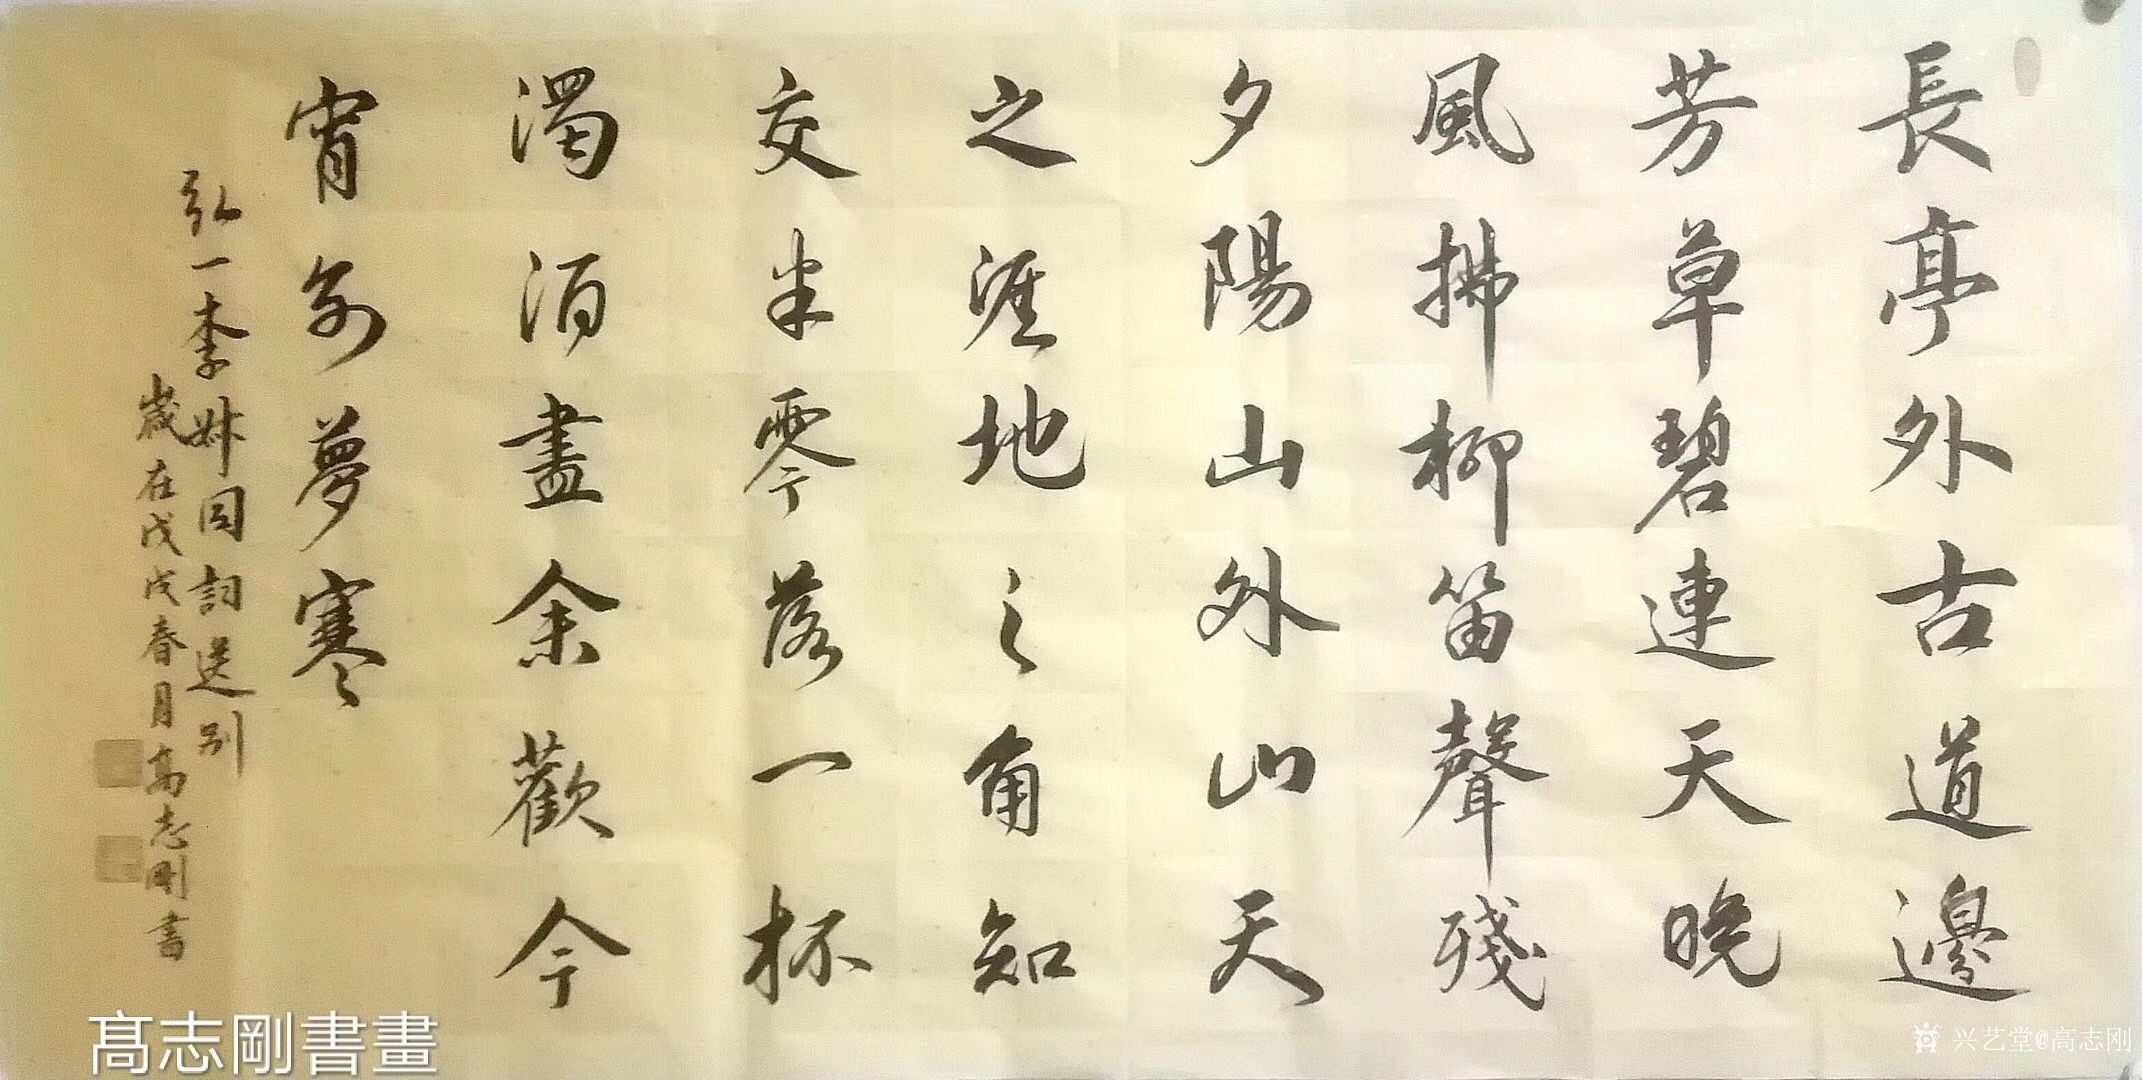 長亭外古道邊
芳草碧連天晚
風拂柳笛聲殘
夕陽山外山天
之涯地之角知
交半零落一杯
濁酒盡余歡今
宵別夢寒
弘一李叔同詞送别
歲在戊戌春月高志剛書
髙志剛書畫
兴艺堂@高志刚